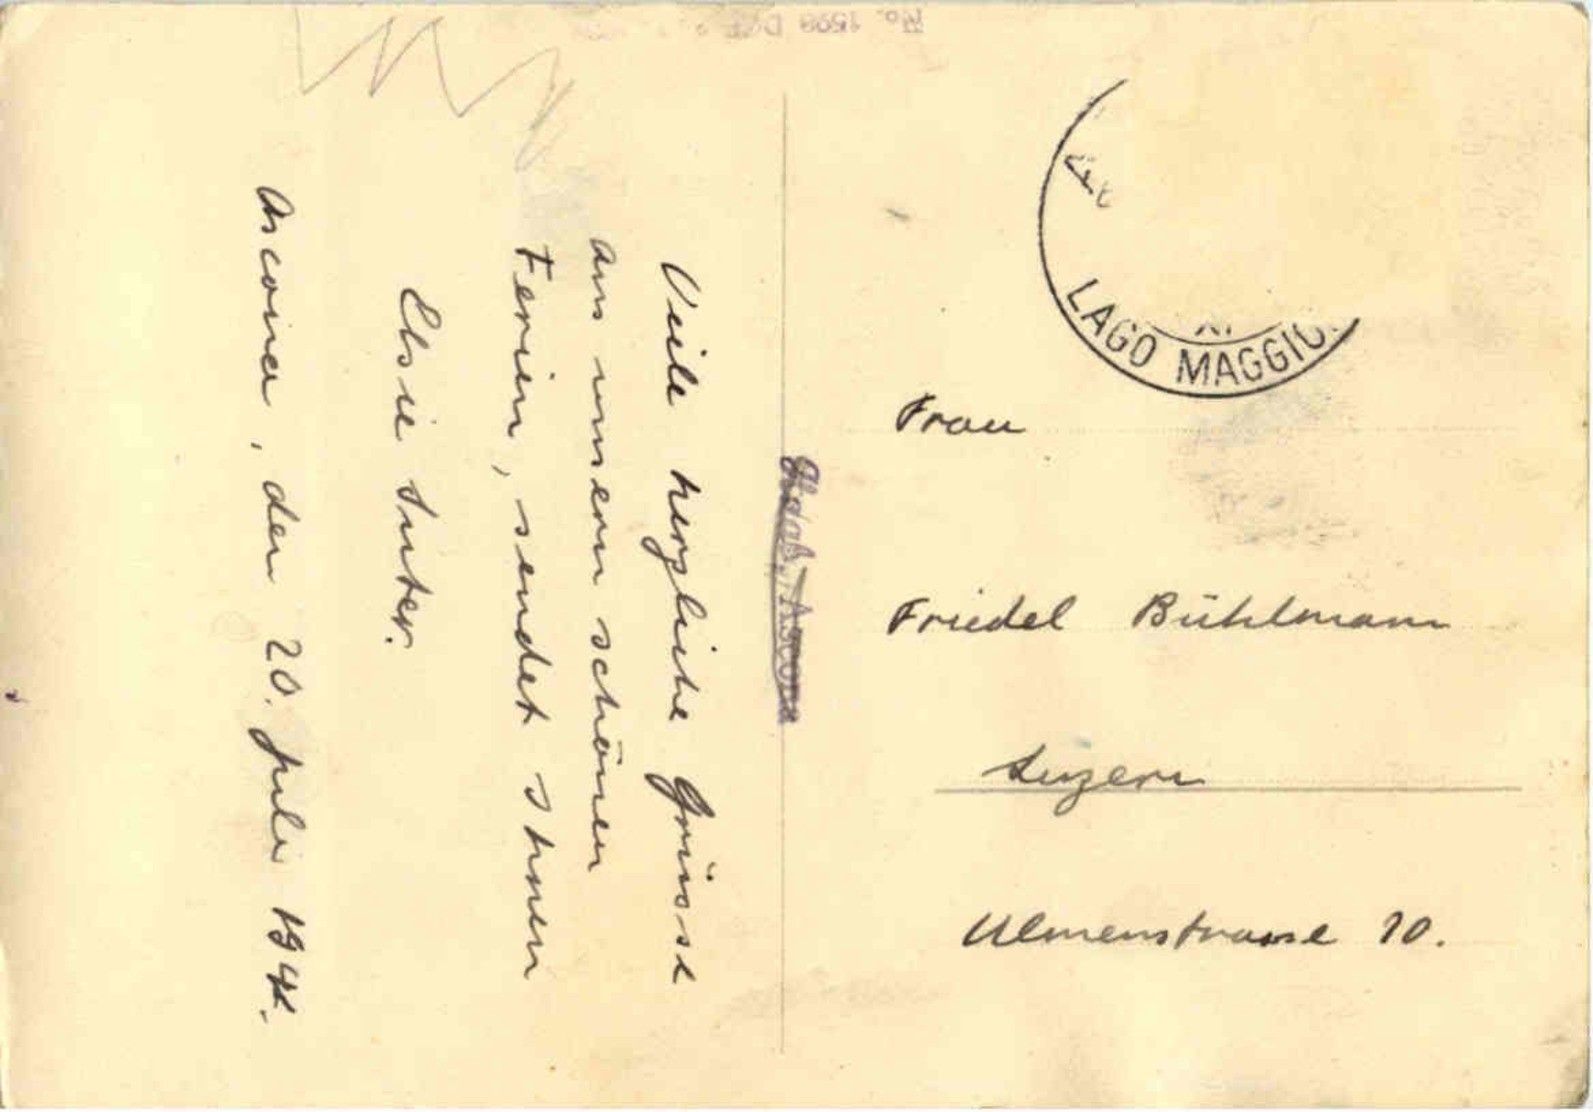 No. 1598
LAGO MAGGIO
Viele herzliche Grüsse
aus unsern schönen
Ferien, sendet Ihnen
Elsie Suter.
Ascona, den 20. Juli 1941.
Ascona
Frau
Friedel Bühlmann
Luzern
Ulmenstrasse 10.